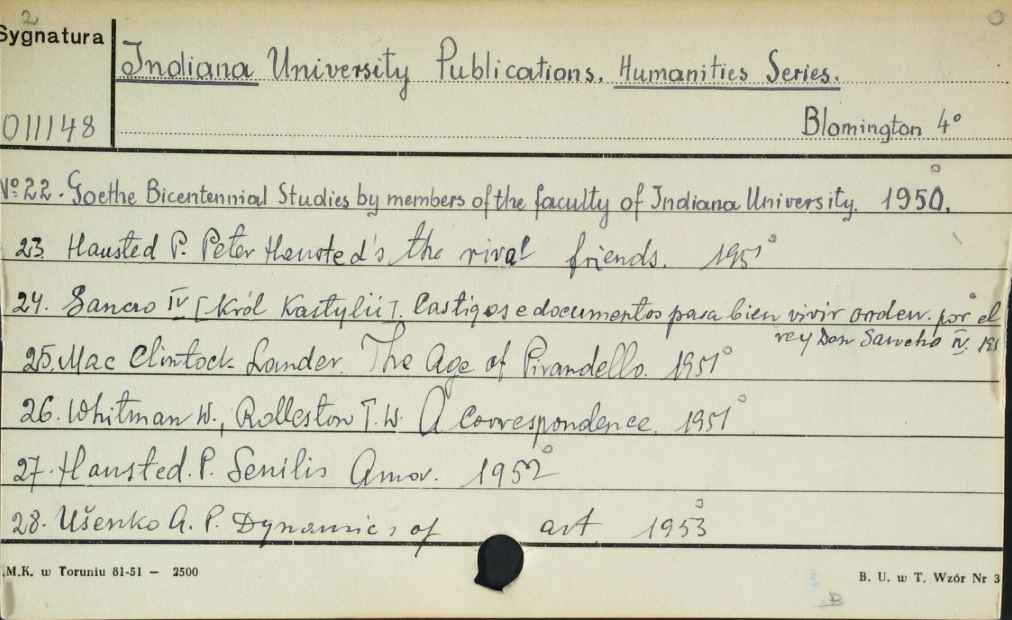 2
Sygnatura
Indiana University Publications. Humanities Series.
011148
Blomington 4°
№ 22. Goethe Bicentennial Studies by members of the faculty of Indiana University. 1950.
23. Hausted P. Peter Hausted's the rival friends. 1951
24. Sancho IV [Król Kastylii]. Castigos e documentos para bien vivir orden. por el
rey Don Sancho IV.
25. Mac Clintock Lander. The Age of Pirandello. 1951
26. Whitman W., Rolleston T. W. A Correspondence. 1951
27. Hausted. P. Senilis Amor. 1952
28. Ušenko A. P. Dynamics of art 1953
M.K. w Toruniu 81-51 — 2500
B. U. w T. Wzór Nr 3
B